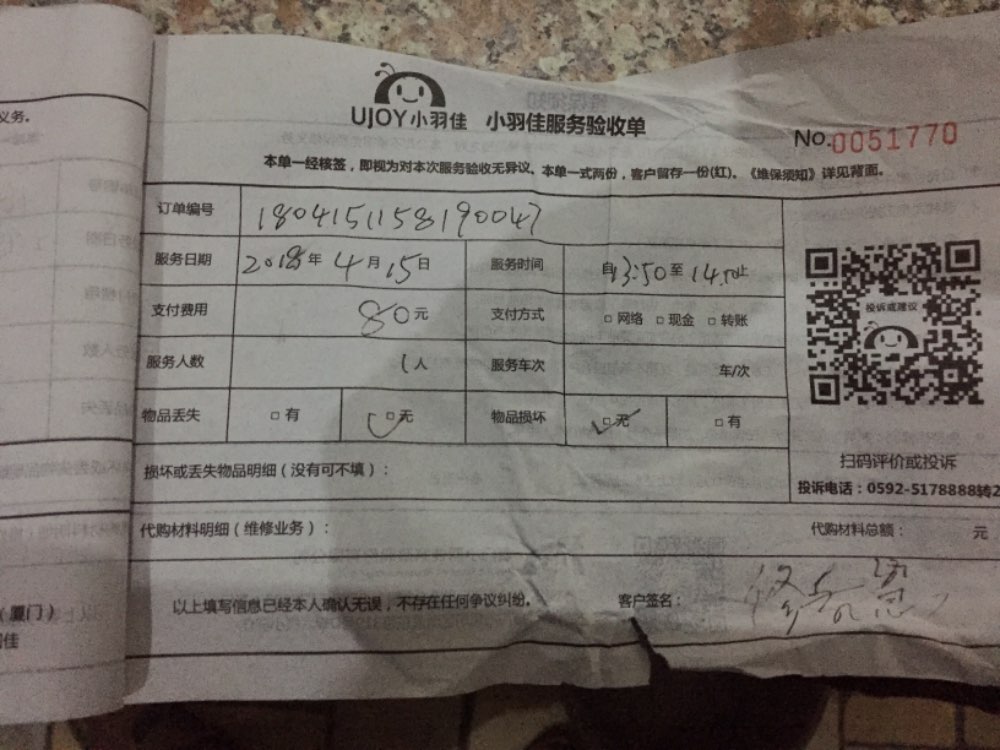 义务。
UJOY小羽佳 小羽佳服务验收单
No.0051770
本单一经核签，即视为对本次服务验收无异议。本单一式两份，客户留存一份(红)。《维保须知》详见背面。
订单编号 1804151158190047
服务日期 2018年4月15日 服务时间 自13:50至14:50止
支付费用 80元 支付方式 □网络 □现金 □转账
服务人数 1人 服务车次 车/次
物品丢失 □有 □无 物品损坏 □无 □有
投诉或建议
扫码评价或投诉
投诉电话：0592-5178888转2
损坏或丢失物品明细（没有可不填）：
代购材料明细（维修业务）： 代购材料总额： 元
以上填写信息已经本人确认无误，不存在任何争议纠纷。 客户签名：
（厦门）
佳